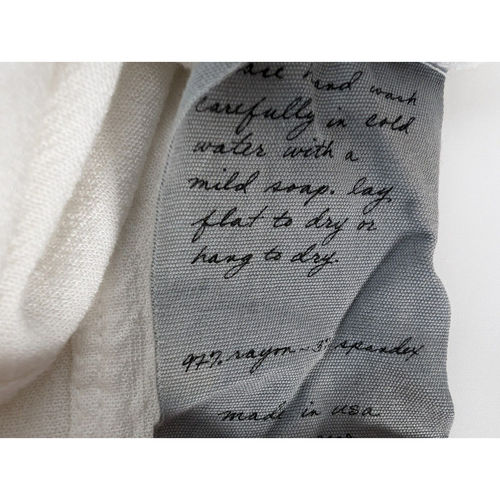 hand wash
carefully in cold
water with a
mild soap. lay
flat to dry or
hang to dry.
97% rayon - 3% spandex
made in usa